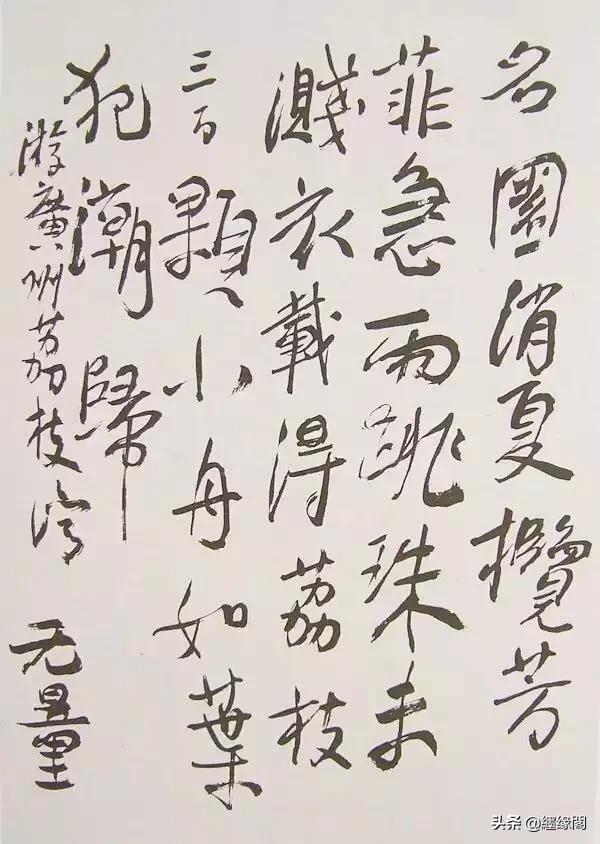 名園消夏攬芳
菲急雨跳珠未
濺衣載得荔枝
三百顆小舟如葉
犯潮歸
游廣州荔枝灣
无量
头条 @缠缘阁